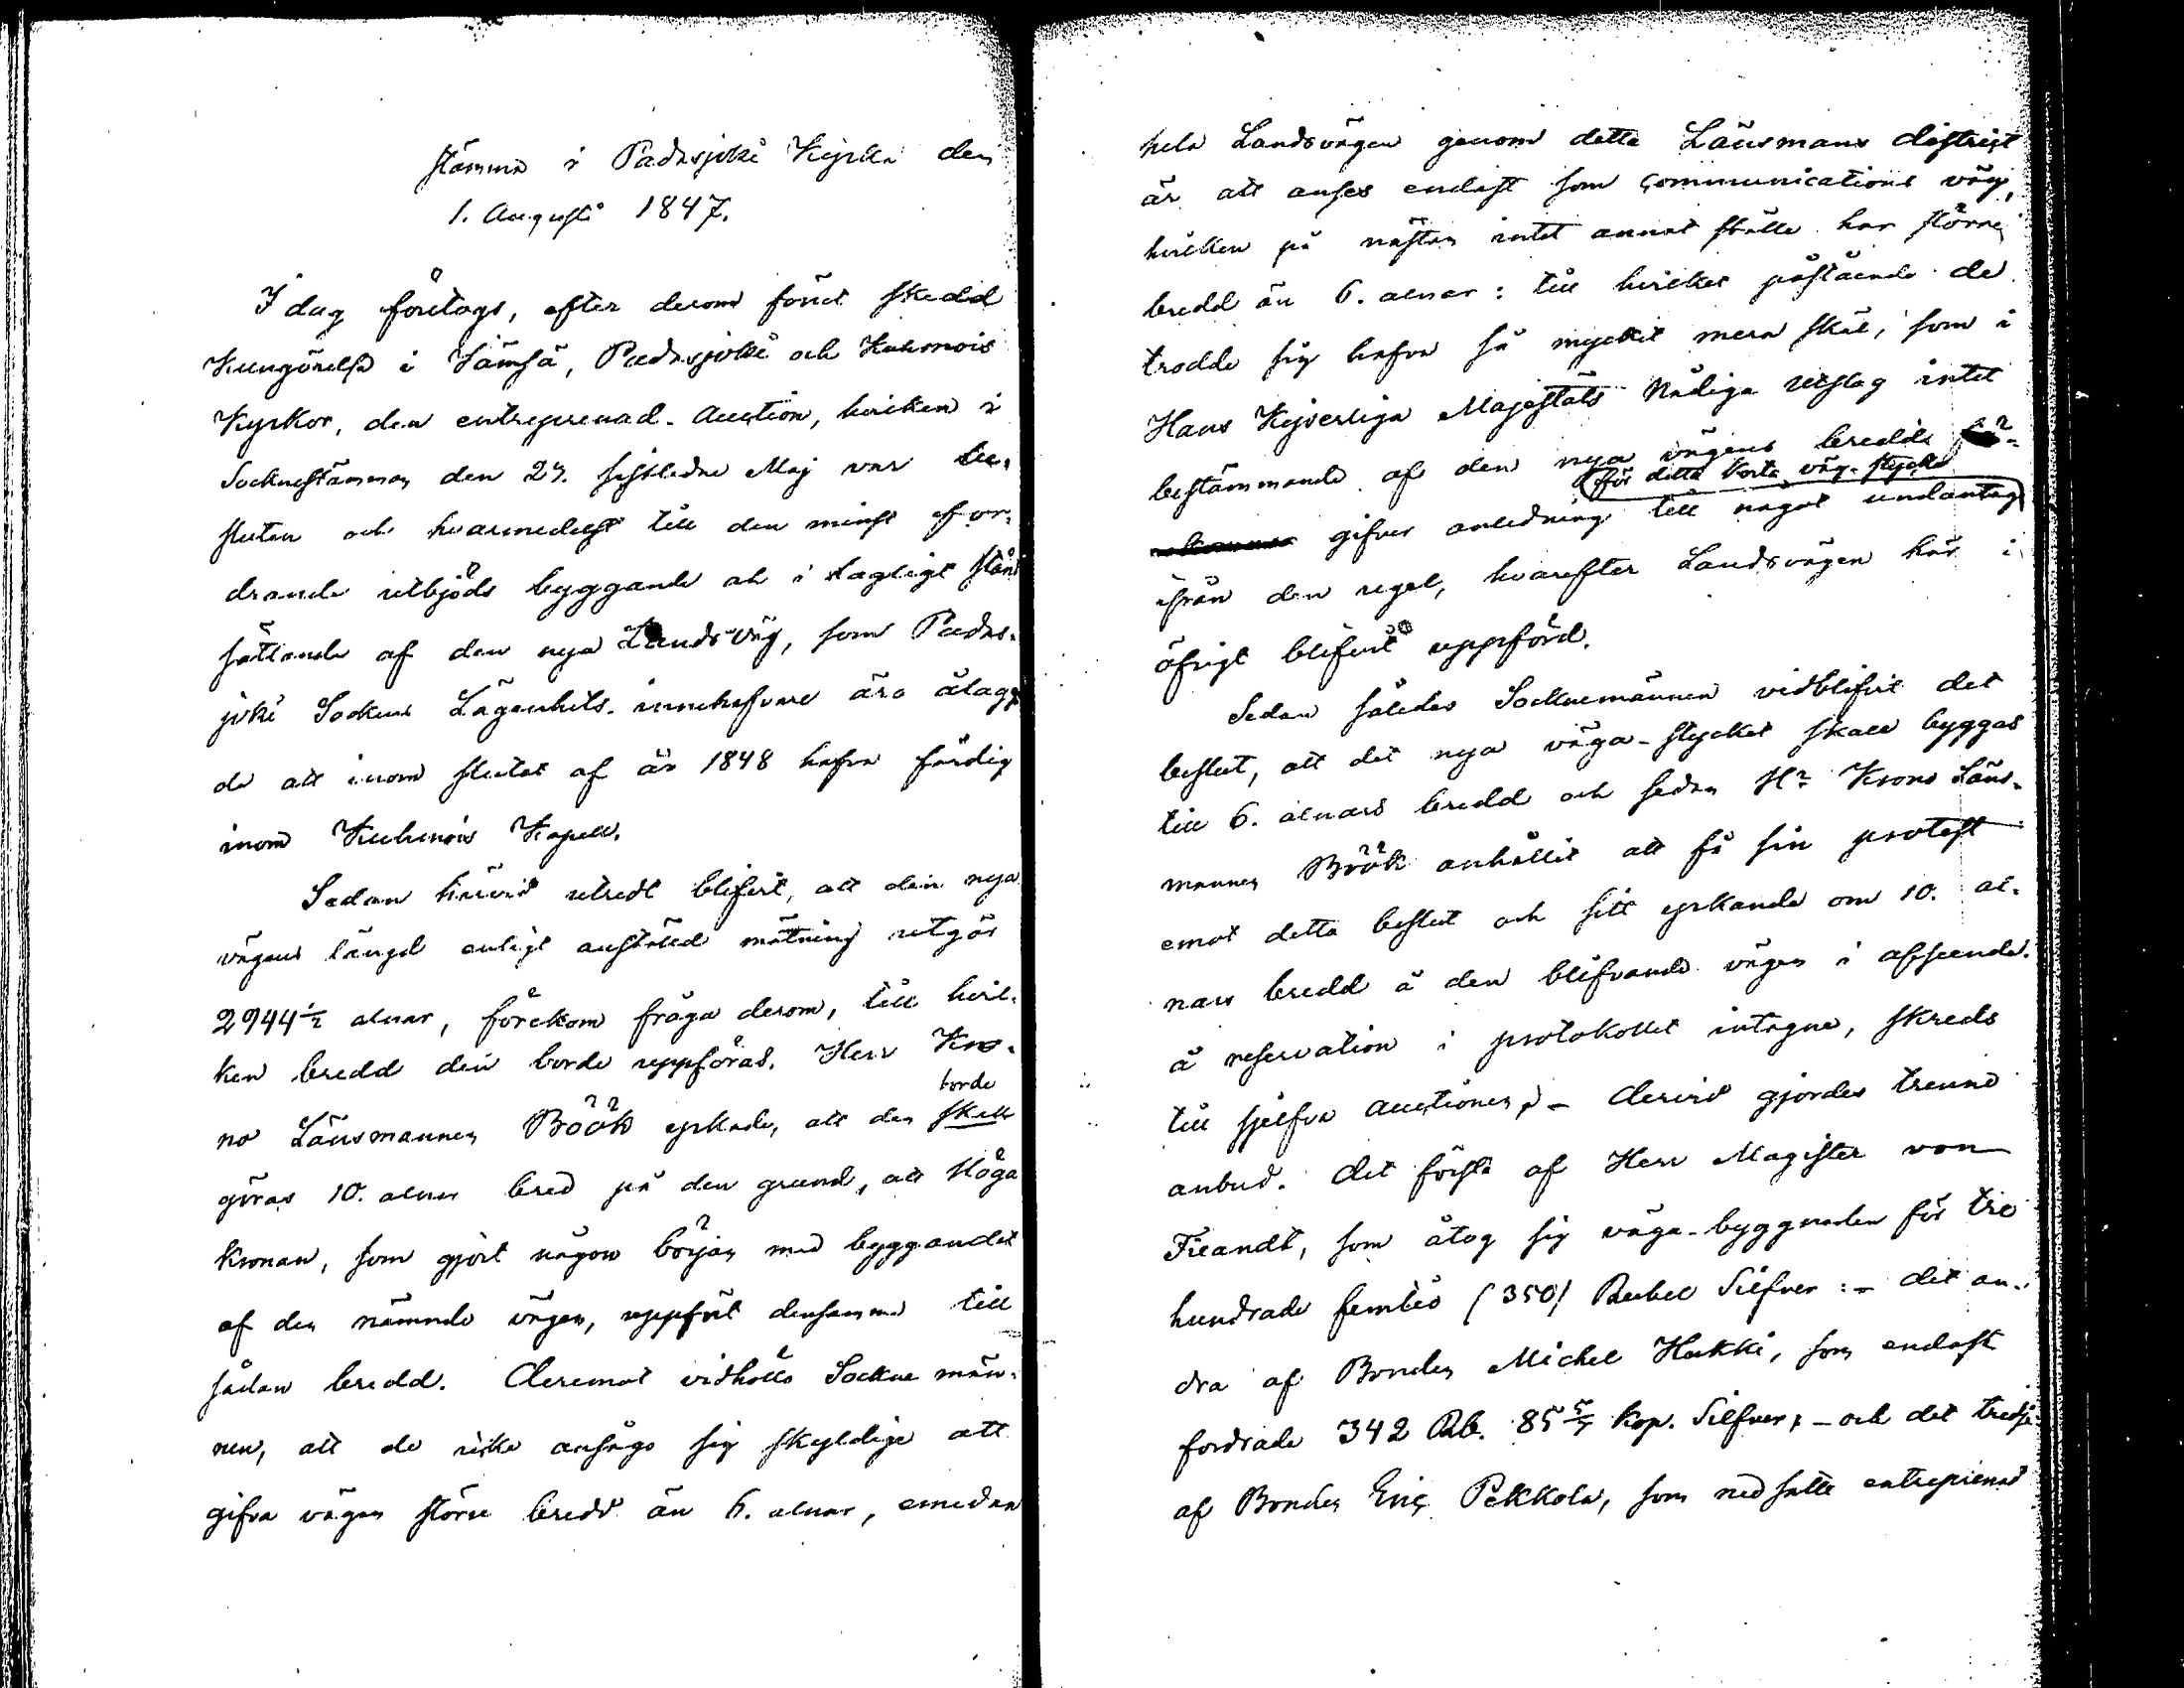 stämma i Padasjoki Kyrka den
1. Augusti 1847.
I dag företogs, efter derom förut skedd
Kungörelse i Jämsä, Padasjoki och Kuhmois
Kyrkor, den entreprenad-Auction, hvilken i
Socknestämman den 24. sistledne Maj var be-
sluten och hvarmedelst till den minst for-
drande utbjöds byggande och i lagligt stånd
sättande af den nya Landsväg, som Padas-
joki Sockens Lägenhets-innehafvare äro ålagg
de att inom slutet af år 1848 hafva färdig
inom Kuhmois Kapell.
Sedan härvid utredt blifvit, att den nya
vägens längd enligt anstäld mätning utgör
2944½ alnar, förekom fråga derom, till hvil-
ken bredd den borde uppföras. Herr Kro-
no Länsmannen Böök yrkade, att den skall
borde
göras 10. alnar bred på den grund, att Höga
Kronan, som gjort någon början med byggandet
af den nämnde vägen, uppfört densamma till
sådan bredd. Deremot vidhöllo Sockne män-
nen, att de icke ansågo sig skyldige att
gifva vägen större bredd än 6. alnar, emedan
hela Landsvägen genom detta Länsmans district
är att anses endast som communications väg,
hvilken på nästan intet annat ställe har större
bredd än 6. alnar: till hvilket påstående de
trodde sig hafva så mycket mera skäl, som i
Hans Kejserliga Majestäts Nådiga utslag intet
bestämmande af den nya vägens bredd
för detta korta väg-stycke
gifver anledning till något undantag
ifrån den regel, hvarefter Landsvägen här i
öfrigt blifvit uppförd.
Sedan således Socknemännen vidblifvit det
beslut, att det nya väga-stycket skall byggas
till 6. alnars bredd och sedan Hr Krono Läns-
mannen Böök anhållit att få sin protest
emot detta beslut och sitt yrkande om 10. al-
nars bredd å den blifvande vägen i afseende
å reservation i protokollet intagne, skreds
till sjelfva auctionen, - Dervid gjordes trenne
anbud. Det första af Herr Magister von
Fieandt, som åtog sig väga-byggnaden för tre
hundrade femtio (350) Rubel Silfver: - det an-
dra af Bonden Michel Hukki, som endast
fordrade 342 Rb. 85 5/7 kop. Silfver; - och det tredje
af Bonden Eric Pekkola, som nedsatte entreprenad